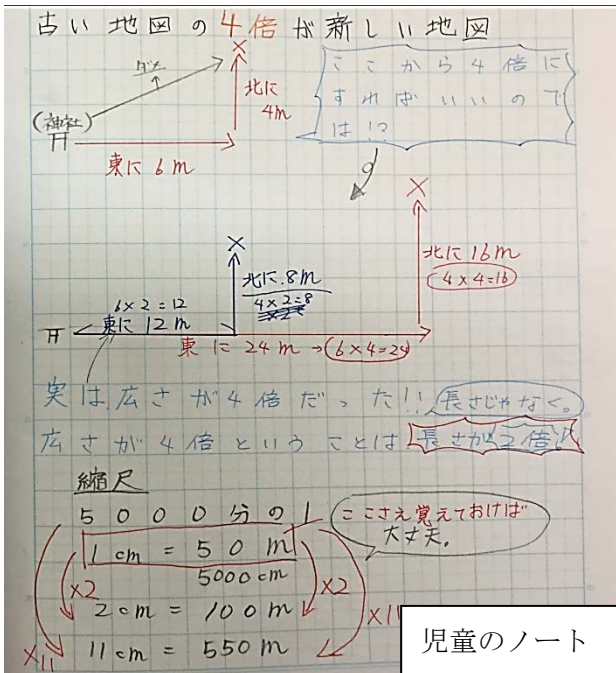 古い地図の4倍が新しい地図
×
ダメ
(神社)
北に
4m
東に6m
ここから4倍に
すればいいので
は!?
×
×
北に16m
4×4=16
北に8m
4×2=8
6×2=12
東に12m
東に24m→6×4=24
実は広さが4倍だった!!長さじゃなく。
広さが4倍ということは長さが2倍!!
縮尺
5000分の1
ここさえ覚えておけば
大丈夫。
1cm=50m
5000cm
×2
×2
2cm=100m
×11
×11
11cm=550m
児童のノート